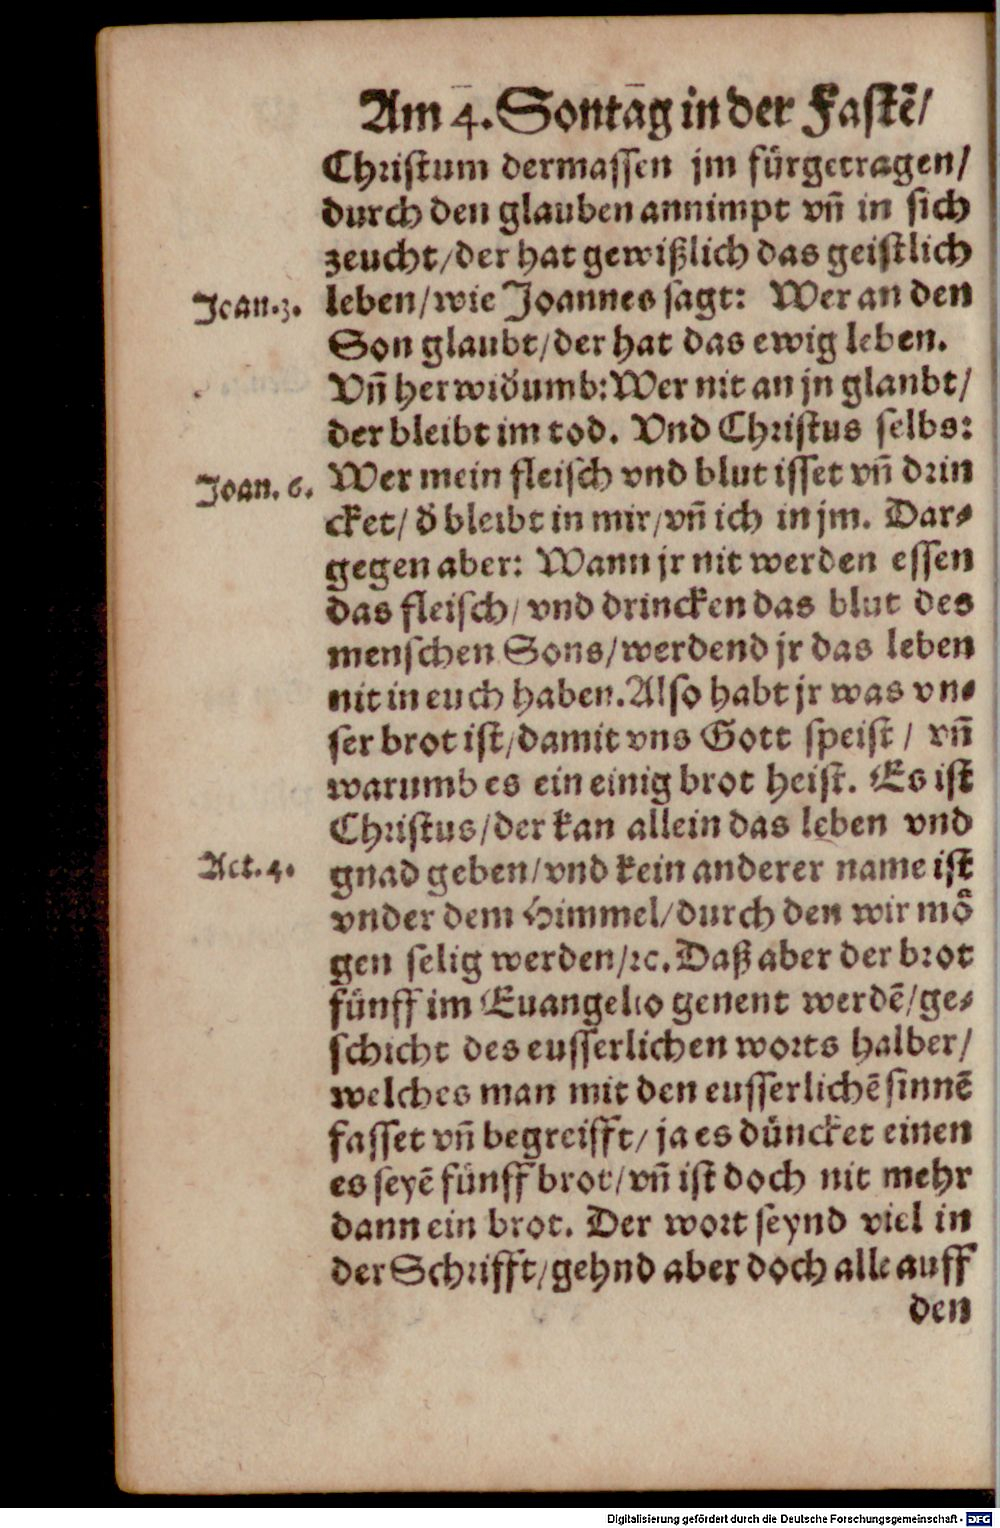 Am 4. Sontag in der Fastē/
Christum dermassen jm fürgetragen/
durch den glauben annimpt vñ in sich
zeucht/der hat gewißlich das geistlich
Joan.3.
leben/wie Joannes sagt: Wer an den
Son glaubt/der hat das ewig leben.
Vñ herwid̄umb: Wer nit an jn glanbt/
der bleibt im tod. Vnd Christus selbs:
Joan. 6.
Wer mein fleisch vnd blut isset vñ drin
cket/ d̄ bleibt in mir/vñ ich in jm. Dar⸗
gegen aber: Wann jr nit werden essen
das fleisch/ vnd drincken das blut des
menschen Sons/werdend jr das leben
nit in euch haben. Also habt jr was vn⸗
ser brot ist/damit vns Gott speist / vñ
warumb es ein einig brot heist. Es ist
Christus/der kan allein das leben vnd
Act. 4.
gnad geben/vnd kein anderer name ist
vnder dem Himmel/durch den wir mö
gen selig werden/ꝛc. Daß aber der brot
fünff im Euangelio genent werdē/ge⸗
schicht des eusserlichen worts halber/
welches man mit den eusserlichē sinnē
fasset vñ begreifft/ ja es düncket einen
es seyē fünff brot/vñ ist doch nit mehr
dann ein brot. Der wort seynd viel in
der Schrifft/gehnd aber doch alle auff
den
Digitalisierung gefördert durch die Deutsche Forschungsgemeinschaft - DFG